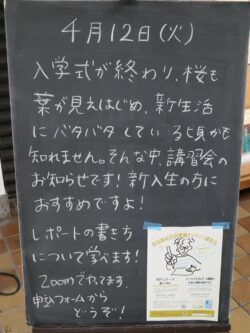 4月12日(火)
入学式が終わり、桜も
葉が見えはじめ、新生活
にバタバタしている頃かも
知れません。そんな中、講習会の
お知らせです！新入生の方に
おすすめですよ！
レポートの書き方
について学べます！
Zoomでやってます
申込フォームから
どうぞ！